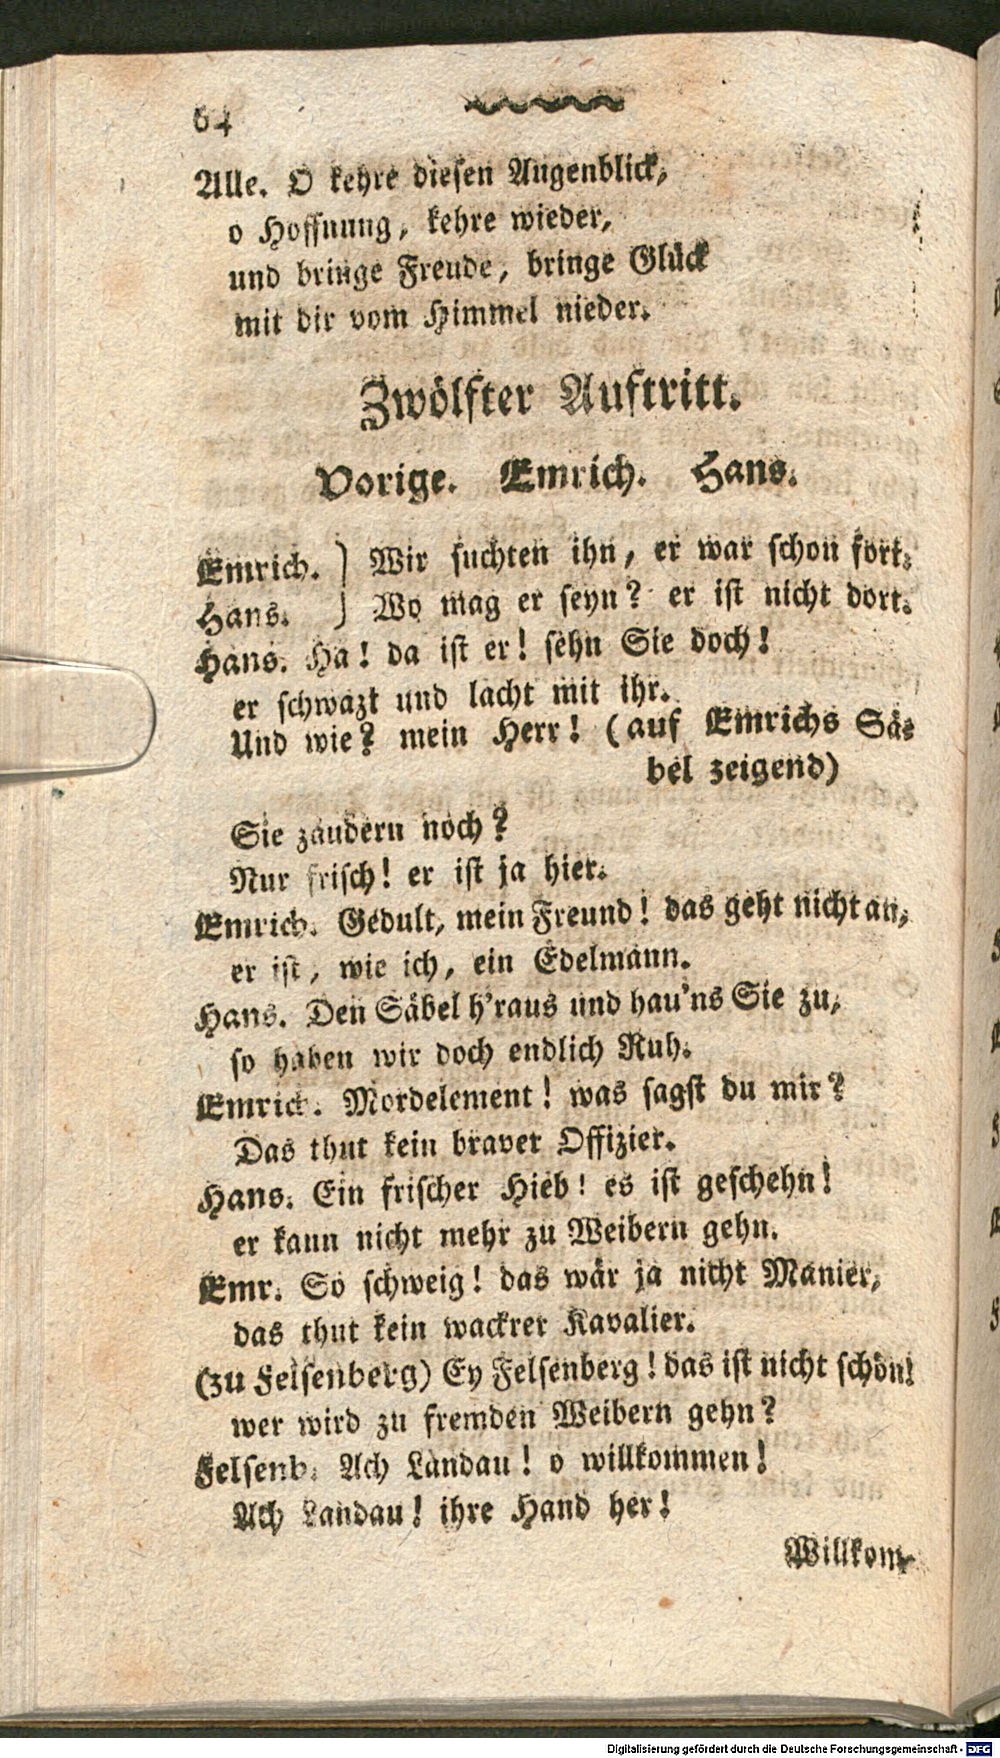 64
Alle. O kehre diesen Augenblick,
o Hoffnung, kehre wieder,
und bringe Freude, bringe Glück
mit dir vom Himmel nieder.
Zwölfter Auftritt.
Vorige. Emrich. Hans.
Emrich. } Wir suchten ihn, er war schon fort.
Hans. } Wo mag er seyn? er ist nicht dort.
Hans. Ha! da ist er! sehn Sie doch!
er schwazt und lacht mit ihr.
Und wie? mein Herr! (auf Emrichs Sä-
bel zeigend)
Sie zaudern noch?
Nur frisch! er ist ja hier.
Emrich. Gedult, mein Freund! das geht nicht an,
er ist, wie ich, ein Edelmann.
Hans. Den Säbel h'raus und hau'ns Sie zu,
so haben wir doch endlich Ruh.
Emrich. Mordelement! was sagst du mir?
Das thut kein braver Offizier.
Hans. Ein frischer Hieb! es ist geschehn!
er kann nicht mehr zu Weibern gehn.
Emr. So schweig! das wär ja nicht Manier,
das thut kein wackrer Kavalier.
(zu Felsenberg) Ey Felsenberg! das ist nicht schön!
wer wird zu fremden Weibern gehn?
Felsenb. Ach Landau! o willkommen!
Ach Landau! ihre Hand her!
Willkom-
Digitalisierung gefördert durch die Deutsche Forschungsgemeinschaft - DFG